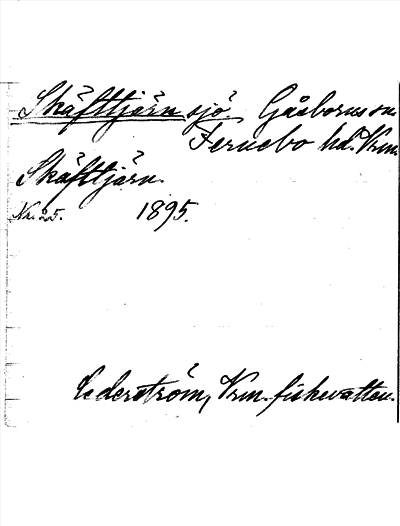 Skäfttjärn sjö Gåsborns sn.
Fernebo hd. Vrm.
Skäfttjärn.
No. 25. 1895.
Cederström, Vrm. fiskevatten.